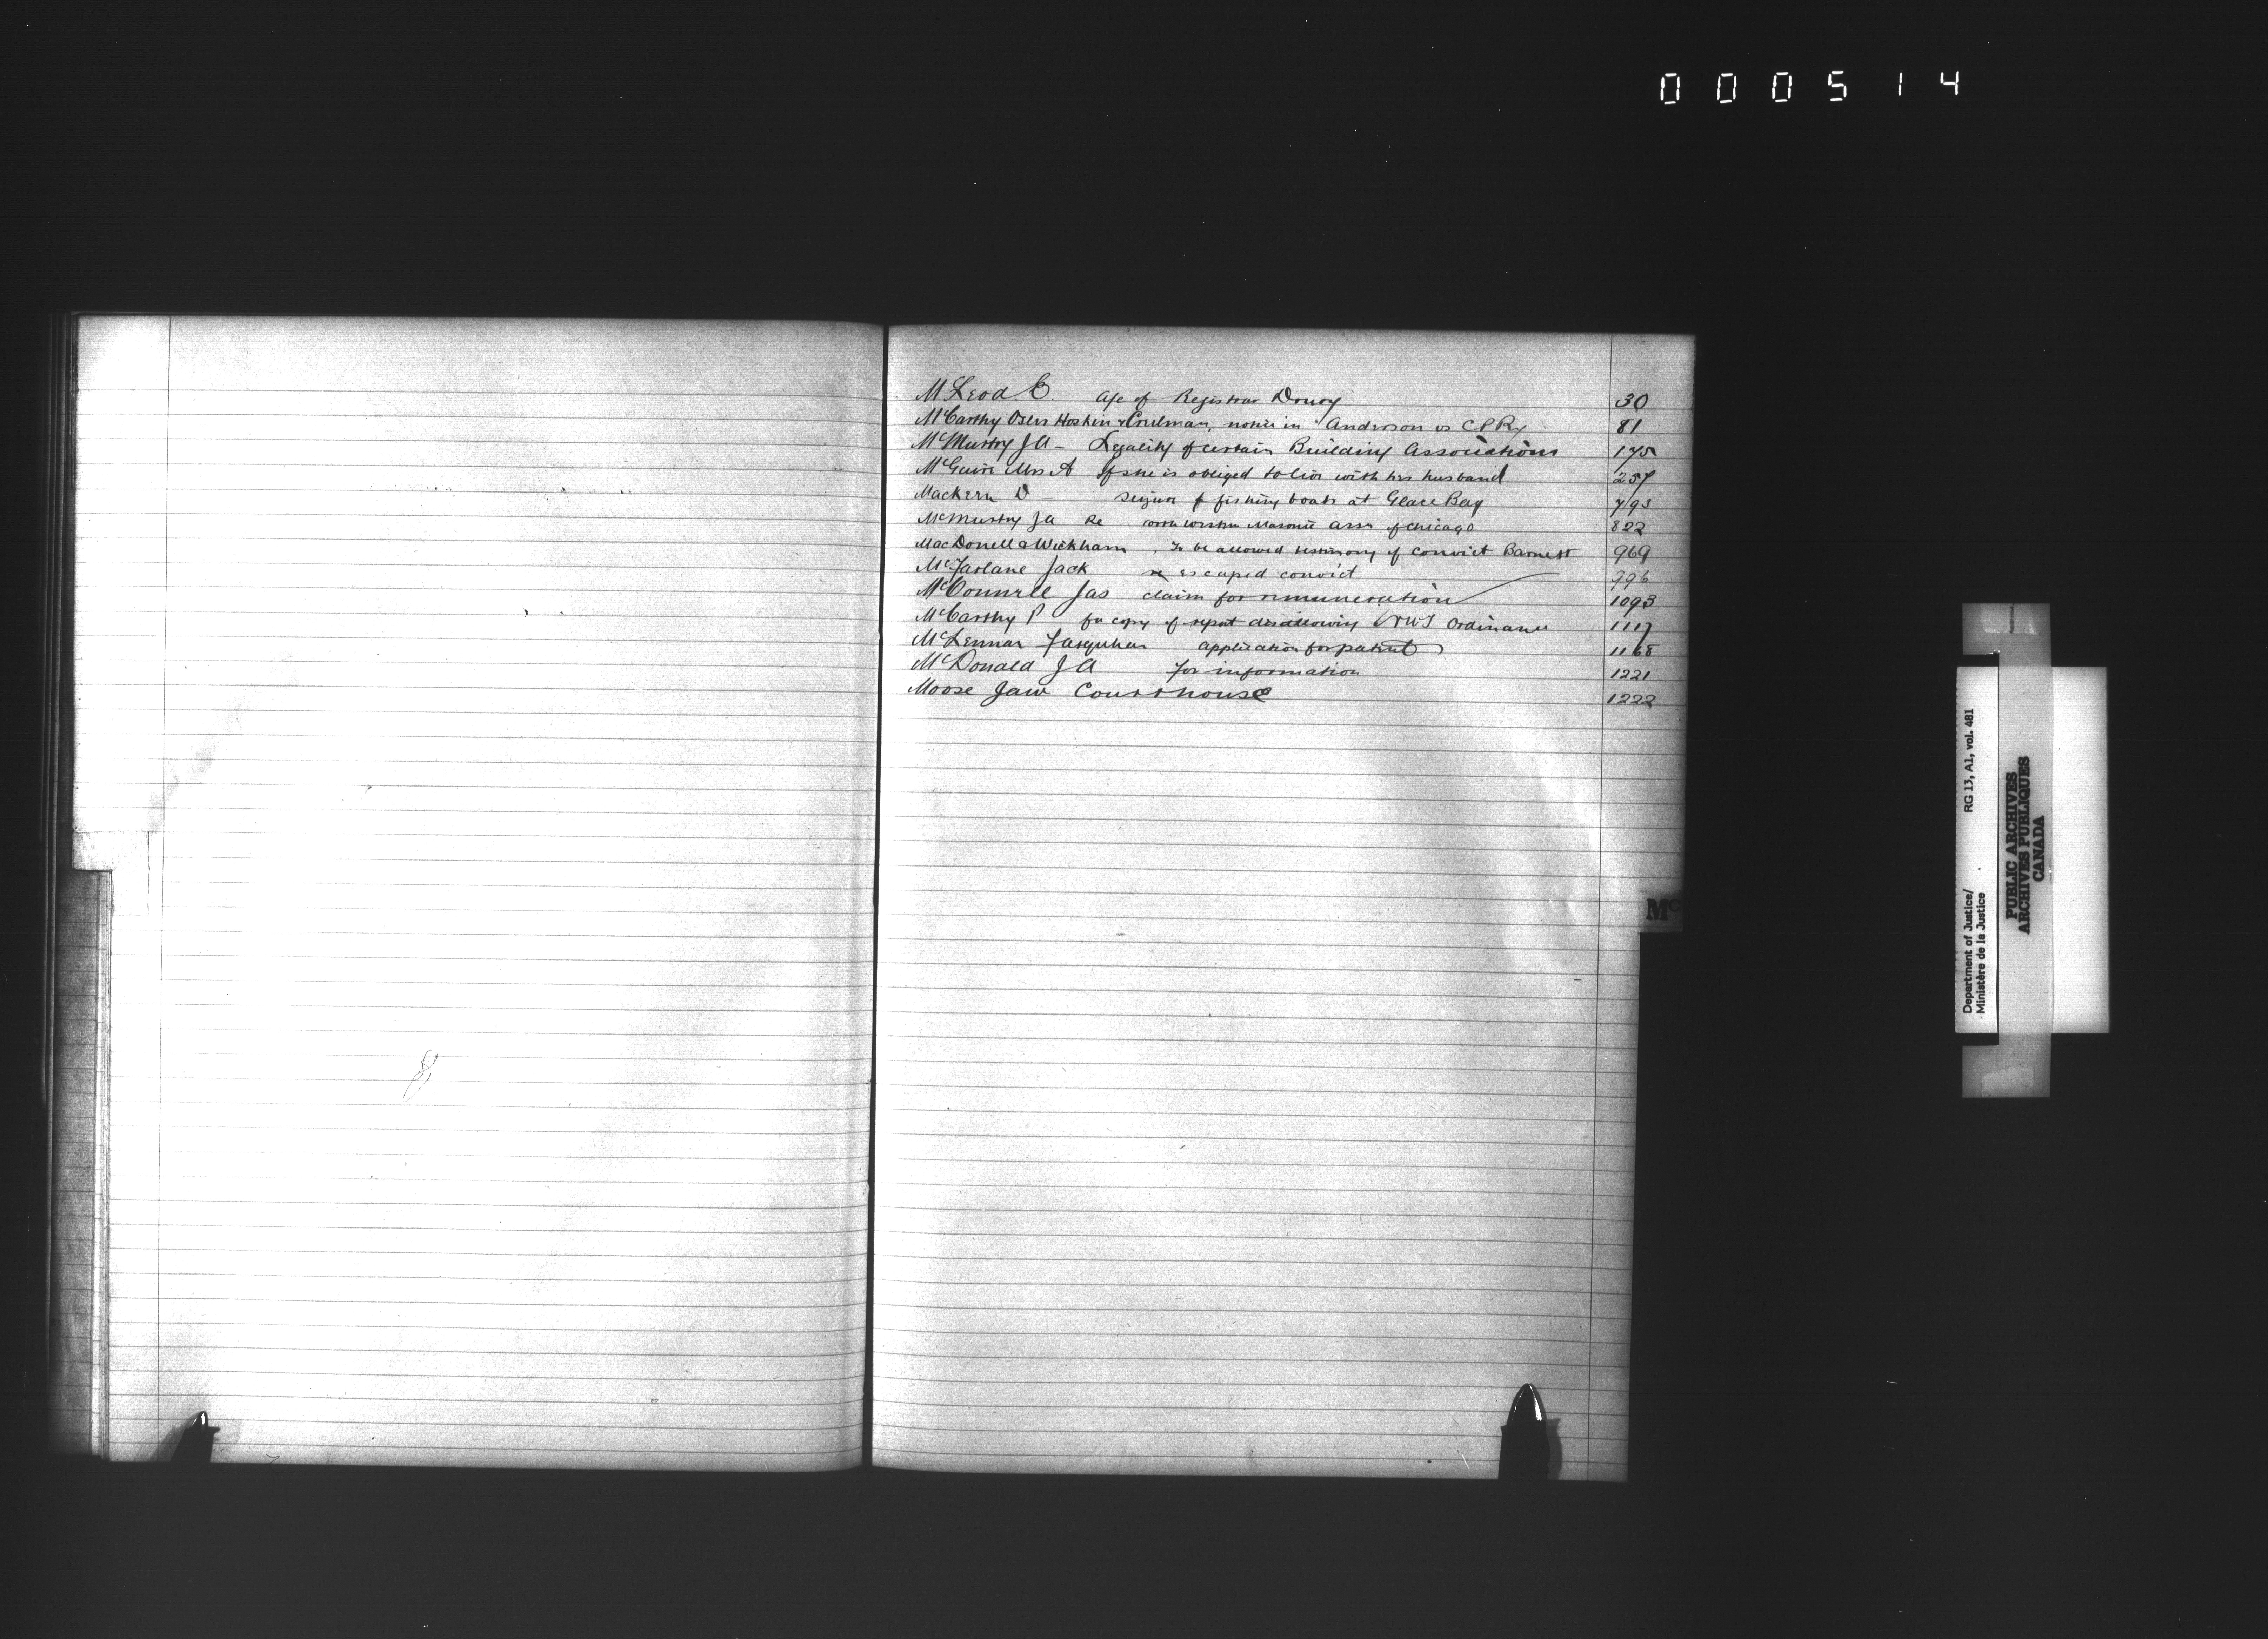 000514
McLeod C. age of Registrar Drury 30
McCarthy Osler Hoskin & Creelman, notice in Anderson vs CPRy 81
McMurtry J A - Legality of certain Building Associations 175
McGuire Mrs A If she is obliged to live with her husband 257
Mackern D seizure of fishing boats at Glace Bay 793
McMurtry J A Re North Western Masonic Assn of Chicago 822
MacDonell & Wickham, To be allowed testimony of convict Barnett 969
McFarlane Jack re escaped convict 996
McConnell Jas claim for remuneration 1093
McCarthy P for copy of report disallowing NWT Ordinance 1117
McLennan Farquhar application for patent 1168
McDonald J A for information 1221
Moose Jaw Courthouse 1222
Mc
Department of Justice/ RG 13, A1, vol. 481
Ministère de la Justice
PUBLIC ARCHIVES
ARCHIVES PUBLIQUES
CANADA